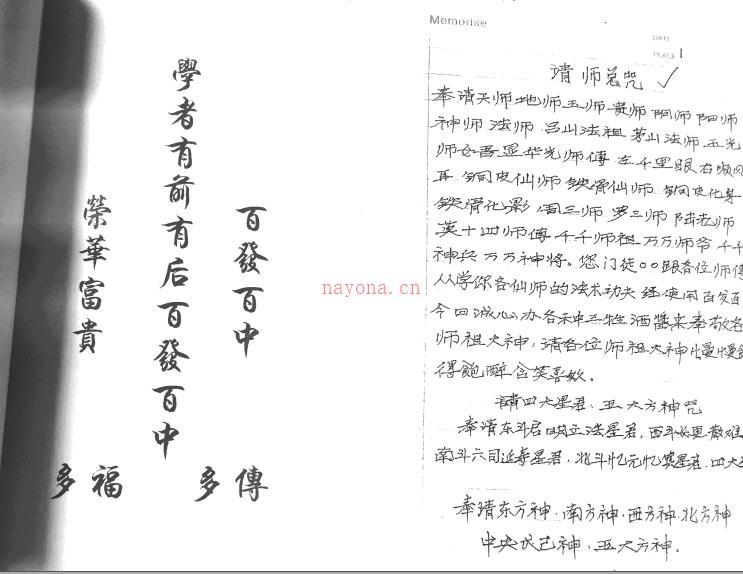 學者有前有后百發百中
百發百中
榮華富貴
多福
多傳
nayona.cn
Memorise
DATE
PLACE
请师总咒 ✓
奉请天师地师五师贤师阴师阳师
神师法师 吕山法祖 茅山法师 五光
师 显华光师傅 左千里眼右顺风
耳 铜皮仙师 铁骨仙师 铜皮化身
铁骨化影 周三师 罗三师 陆 师
英十四师傅 千千师祖 万万师爷 千千
神兵 万万神将。您门徒〇〇跟各位师傅
从学你各仙师的法术功夫 经使用百发百
今日诚心办各种三牲酒 来奉敬各
师祖大神，请各位师祖大神慢慢
得飽醉含笑喜欢。
请四大星君、五大方神咒
奉请东斗 星君，西斗 星
南斗六司延寿星君，北斗 星君 四大
奉请东方神、南方神、西方神、北方神
中央戊己神、五大方神。